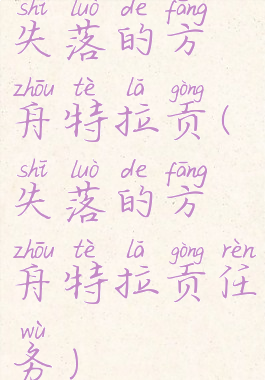 shī luò de fāng
失落的方
zhōu tè lā gòng
舟特拉贡(
shī luò de fāng
失落的方
zhōu tè lā gòng rèn
舟特拉贡任
wù
务)